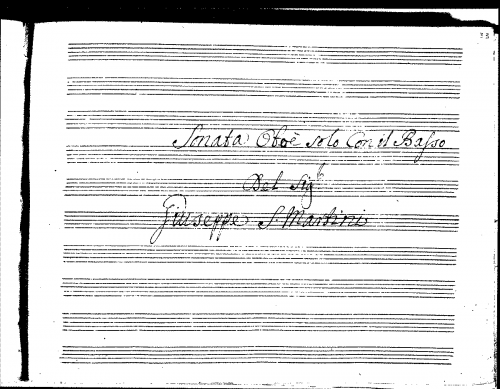 33
Sonata Oboè solo Con il Basso
Del Sigr
Giuseppe S Martini